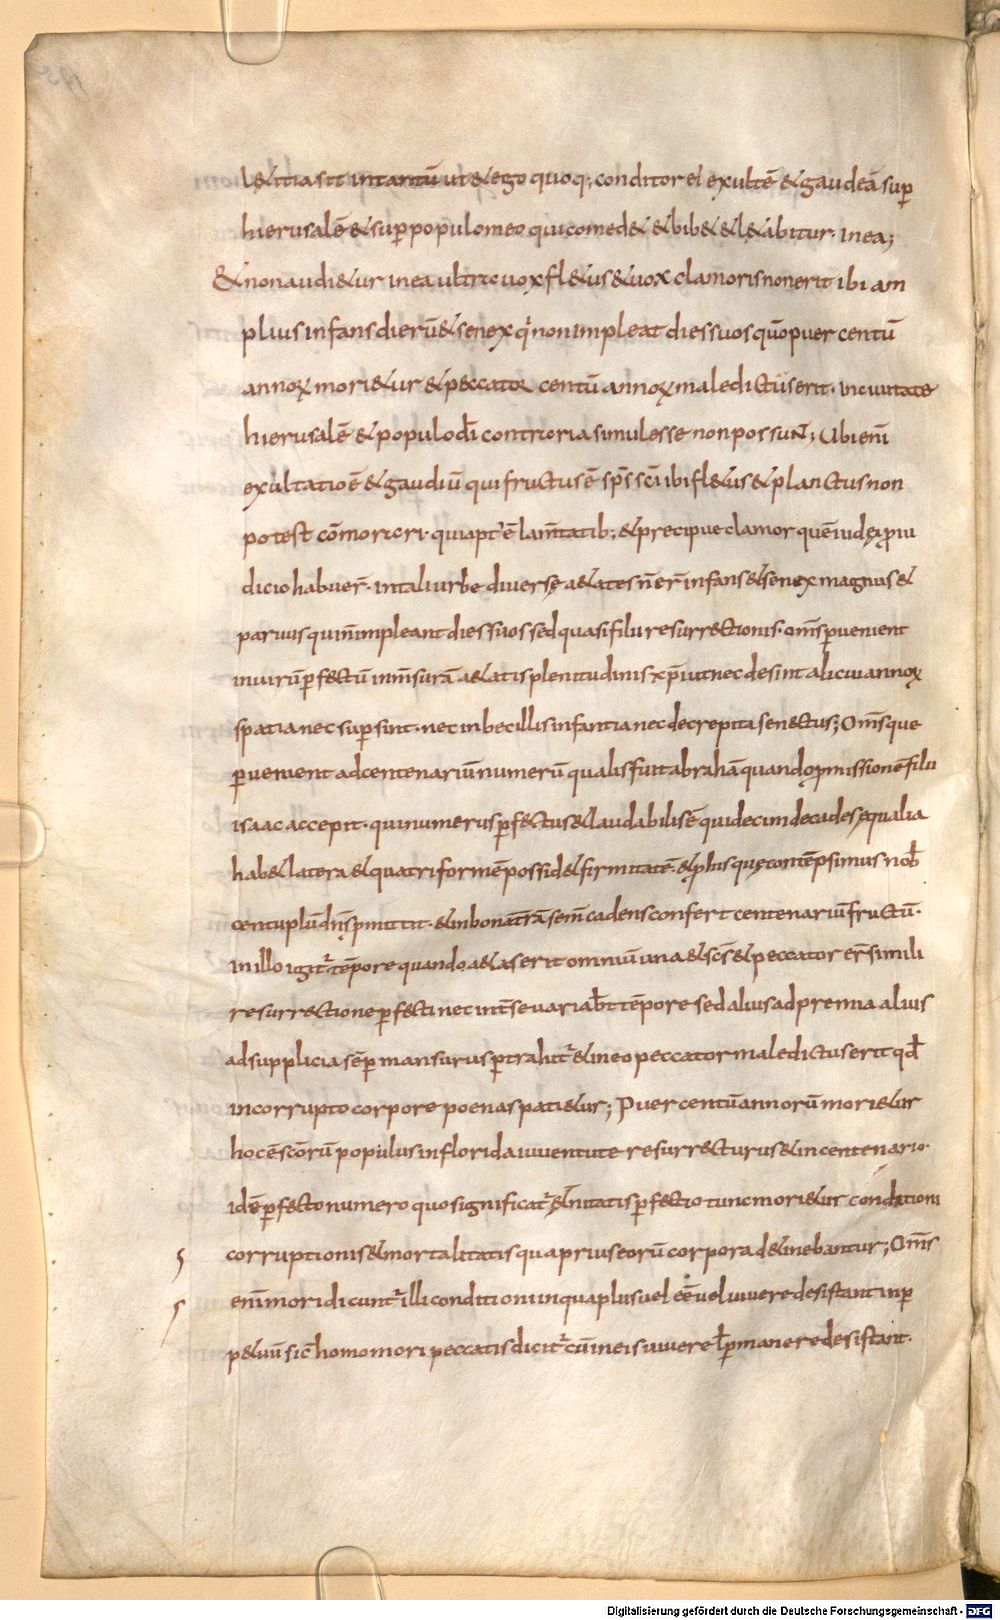 l&itia sit intantū ut & ego quoq; conditor ei exultē & gaudeā sup
hierusalē & sup populo meo qui comed& & bib& & l&abitur. in ea;
& non audi&ur in ea ultra uox fl&us & uox clamoris non erit ibi am
plius infans dierū & senex q non impleat dies suos quō puer centū
annoꝝ mori&ur & peccator centū annoꝝ maledictus erit. in ciuitate
hierusalē & populo dī contraria simul esse non possunt; Ubi enī
exultatio ē & gaudiū qui fructus ē sps sci ibi fl&us & planctus non
potest cōmorari. quia pt ē lamtatib; & precipue clamor quē iudęi p iu
dicio habuer. in tali urbe diuersę a&ates n er infans & senex magnus &
paruus qui n impleant dies suos sed quasi filii resurr&ionis. oms puenient
in uirū pf&ū in msurā a&atis plenitudinis xpi ut nec desint alicui annoꝝ
spatia nec supsint. nec inbecillis infantia nec decrepita sen&us; Omsque
puenient ad centenariū numerū qualis fuit abrahā quando pmissionē filii
isaac accepit. qui numerus pf&us & laudabilis ē qui decim decades ęqualia
hab& latera & quatriformē possid& firmitatē. & plus quę contēpsimus nob
centuplū dns pmittit. & in bona trā sem cadens confert centenariū fructū.
in illo igit tēpore quando a&as erit omniū una & scs & peccator er simili
resurr&ione pf&i nec int se uariabt tēpore sed alius ad premia alius
ad supplicia sēp mansurus ptrahit & in eo peccator maledictus erit qd
incorrupto corpore poenas pati&ur; Puer centū annorū mori&ur
hoc ē scorū populus in florida iuuentute resurr&urus & in centenario.
id ē pf&o numero quo significat &nitatis pf&io tunc mori&ur conditioni
corruptionis & mortalitatis qua prius eorū corpora d&inebantur; Oms
enī mori dicunt illi conditioni in qua plus uel eē uel uiuere desistant in p
p&uū sic homo mori peccatis dicit cū in eis uiuere l pmanere desistant.
Digitalisierung gefördert durch die Deutsche Forschungsgemeinschaft - DFG